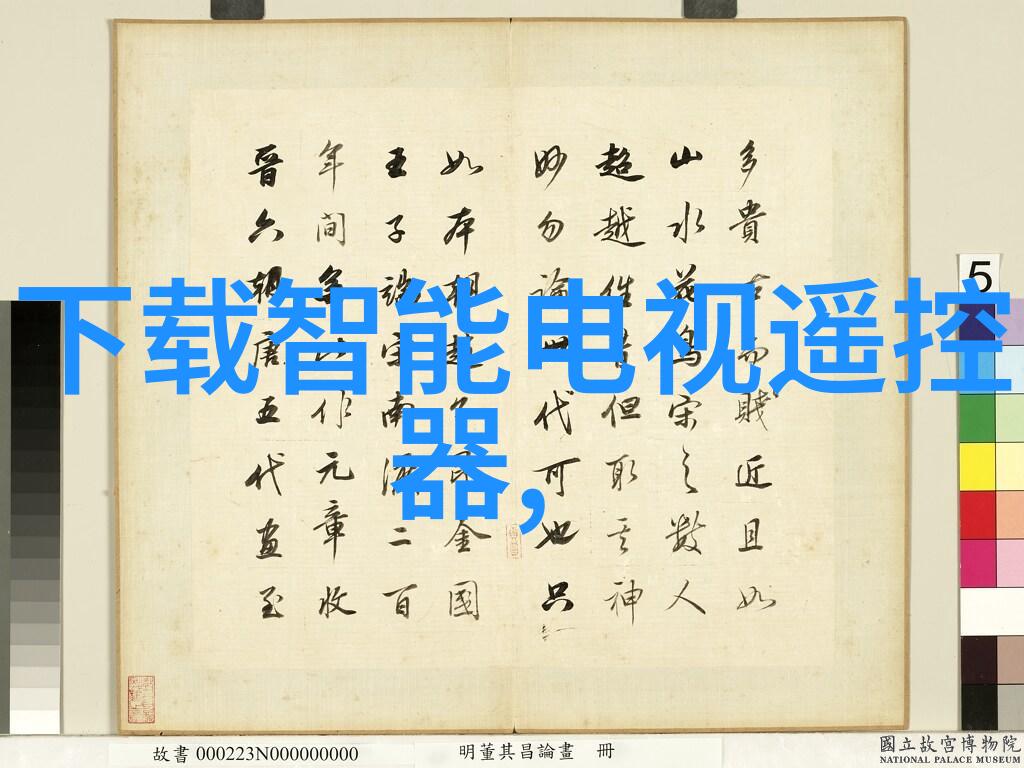 下载智能电视遥控
器,
多貴古而賤近且如
山水花鳥宋之數人
超越往昔但取其神
妙勿論世代可也只
如本朝趙
金國
王子
宋南渡二百
年間
作元章收
晉六朝唐五代畫至
5
故書 000223N000000000
明董其昌論畫 冊
國立故宮博物院
NATIONAL PALACE MUSEUM